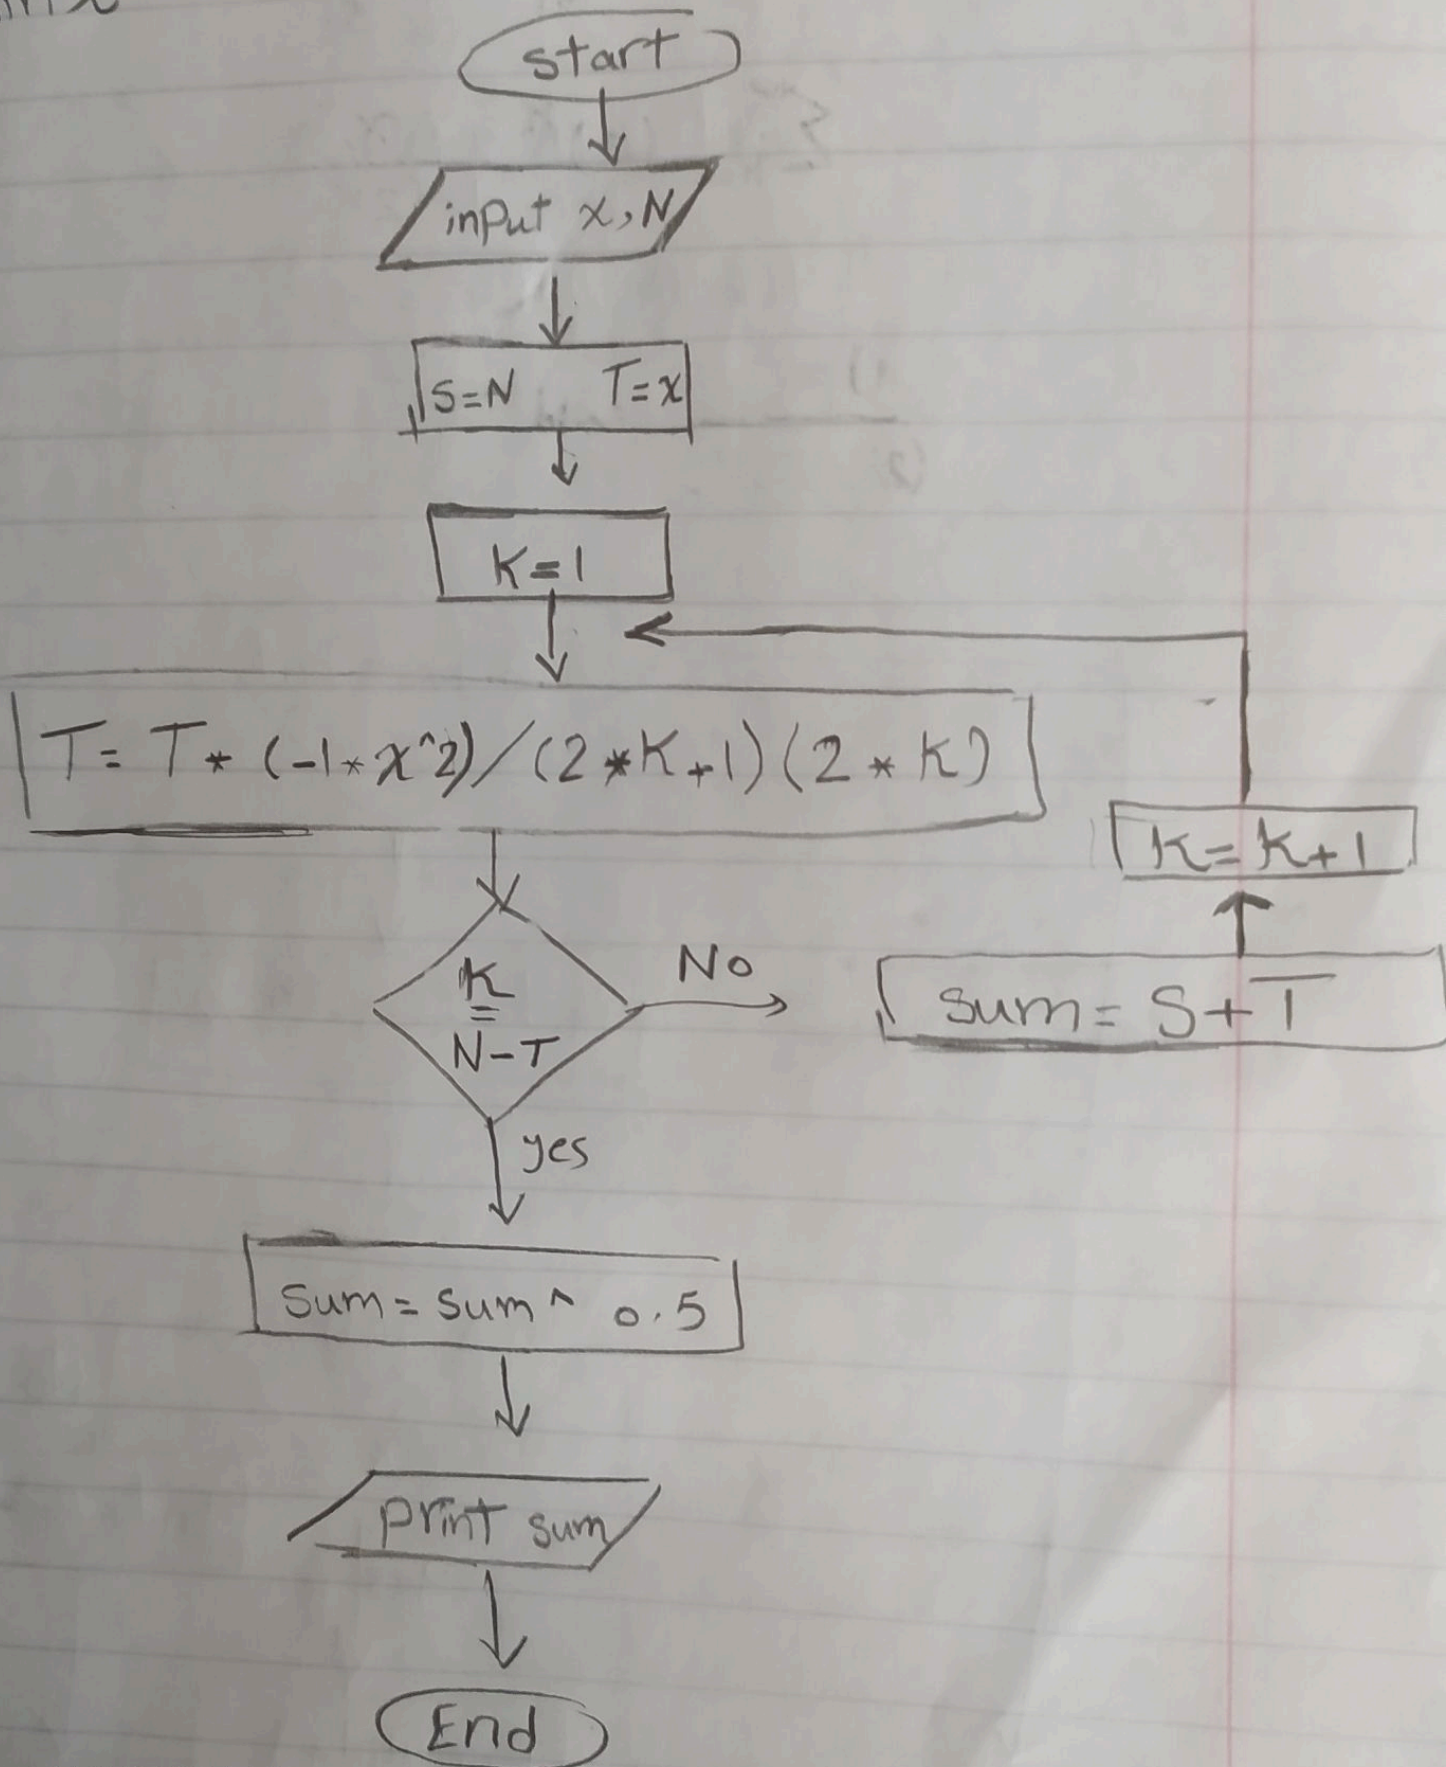 start
input x, N
S=N T=x
K=1
T= T* (-1*x^2)/(2*K+1)(2*K)
K
=
N-T
No
sum= S+T
K=K+1
yes
sum= sum^ 0.5
print sum
End